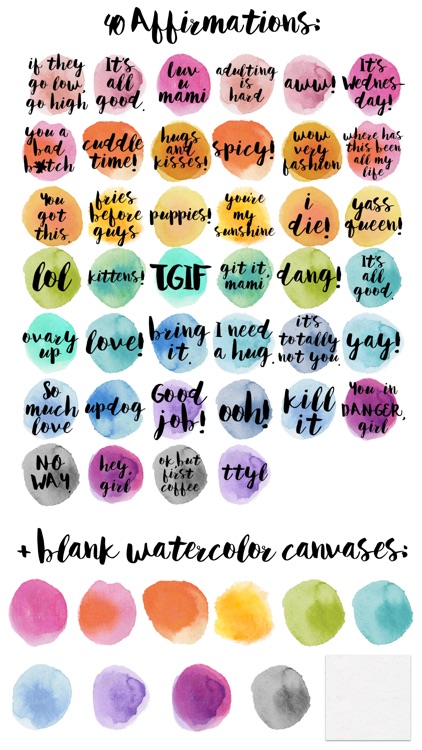 40 Affirmations:
if they
go low,
go high
It's
all
good.
luv
u
mami
adulting
is
hard
aww!
It's
Wednes-
day!
you a
bad
b*tch
cuddle
time!
hugs
and
kisses!
spicy!
wow
very
fashion
where has
this been
all my
life
You
got
this.
fries
before
guys
puppies!
you're
my
sunshine
i
die!
yass
queen!
lol
kittens!
TGIF
git it,
mami
dang!
It's
all
good.
ovary
up
love!
bring
it.
I need
a hug.
it's
totally
not you.
yay!
So
much
love
updog
Good
job!
ooh!
kill
it
You in
DANGER,
girl
NO
WAY.
hey,
girl
ok but
first
coffee
ttyl
+ blank watercolor canvases: